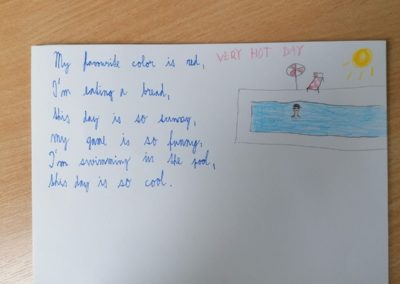 VERY HOT DAY
My favourite color is red,
I'm eating a bread,
this day is so sunny,
my game is so funny,
I'm swimming in the pool,
this day is so cool.